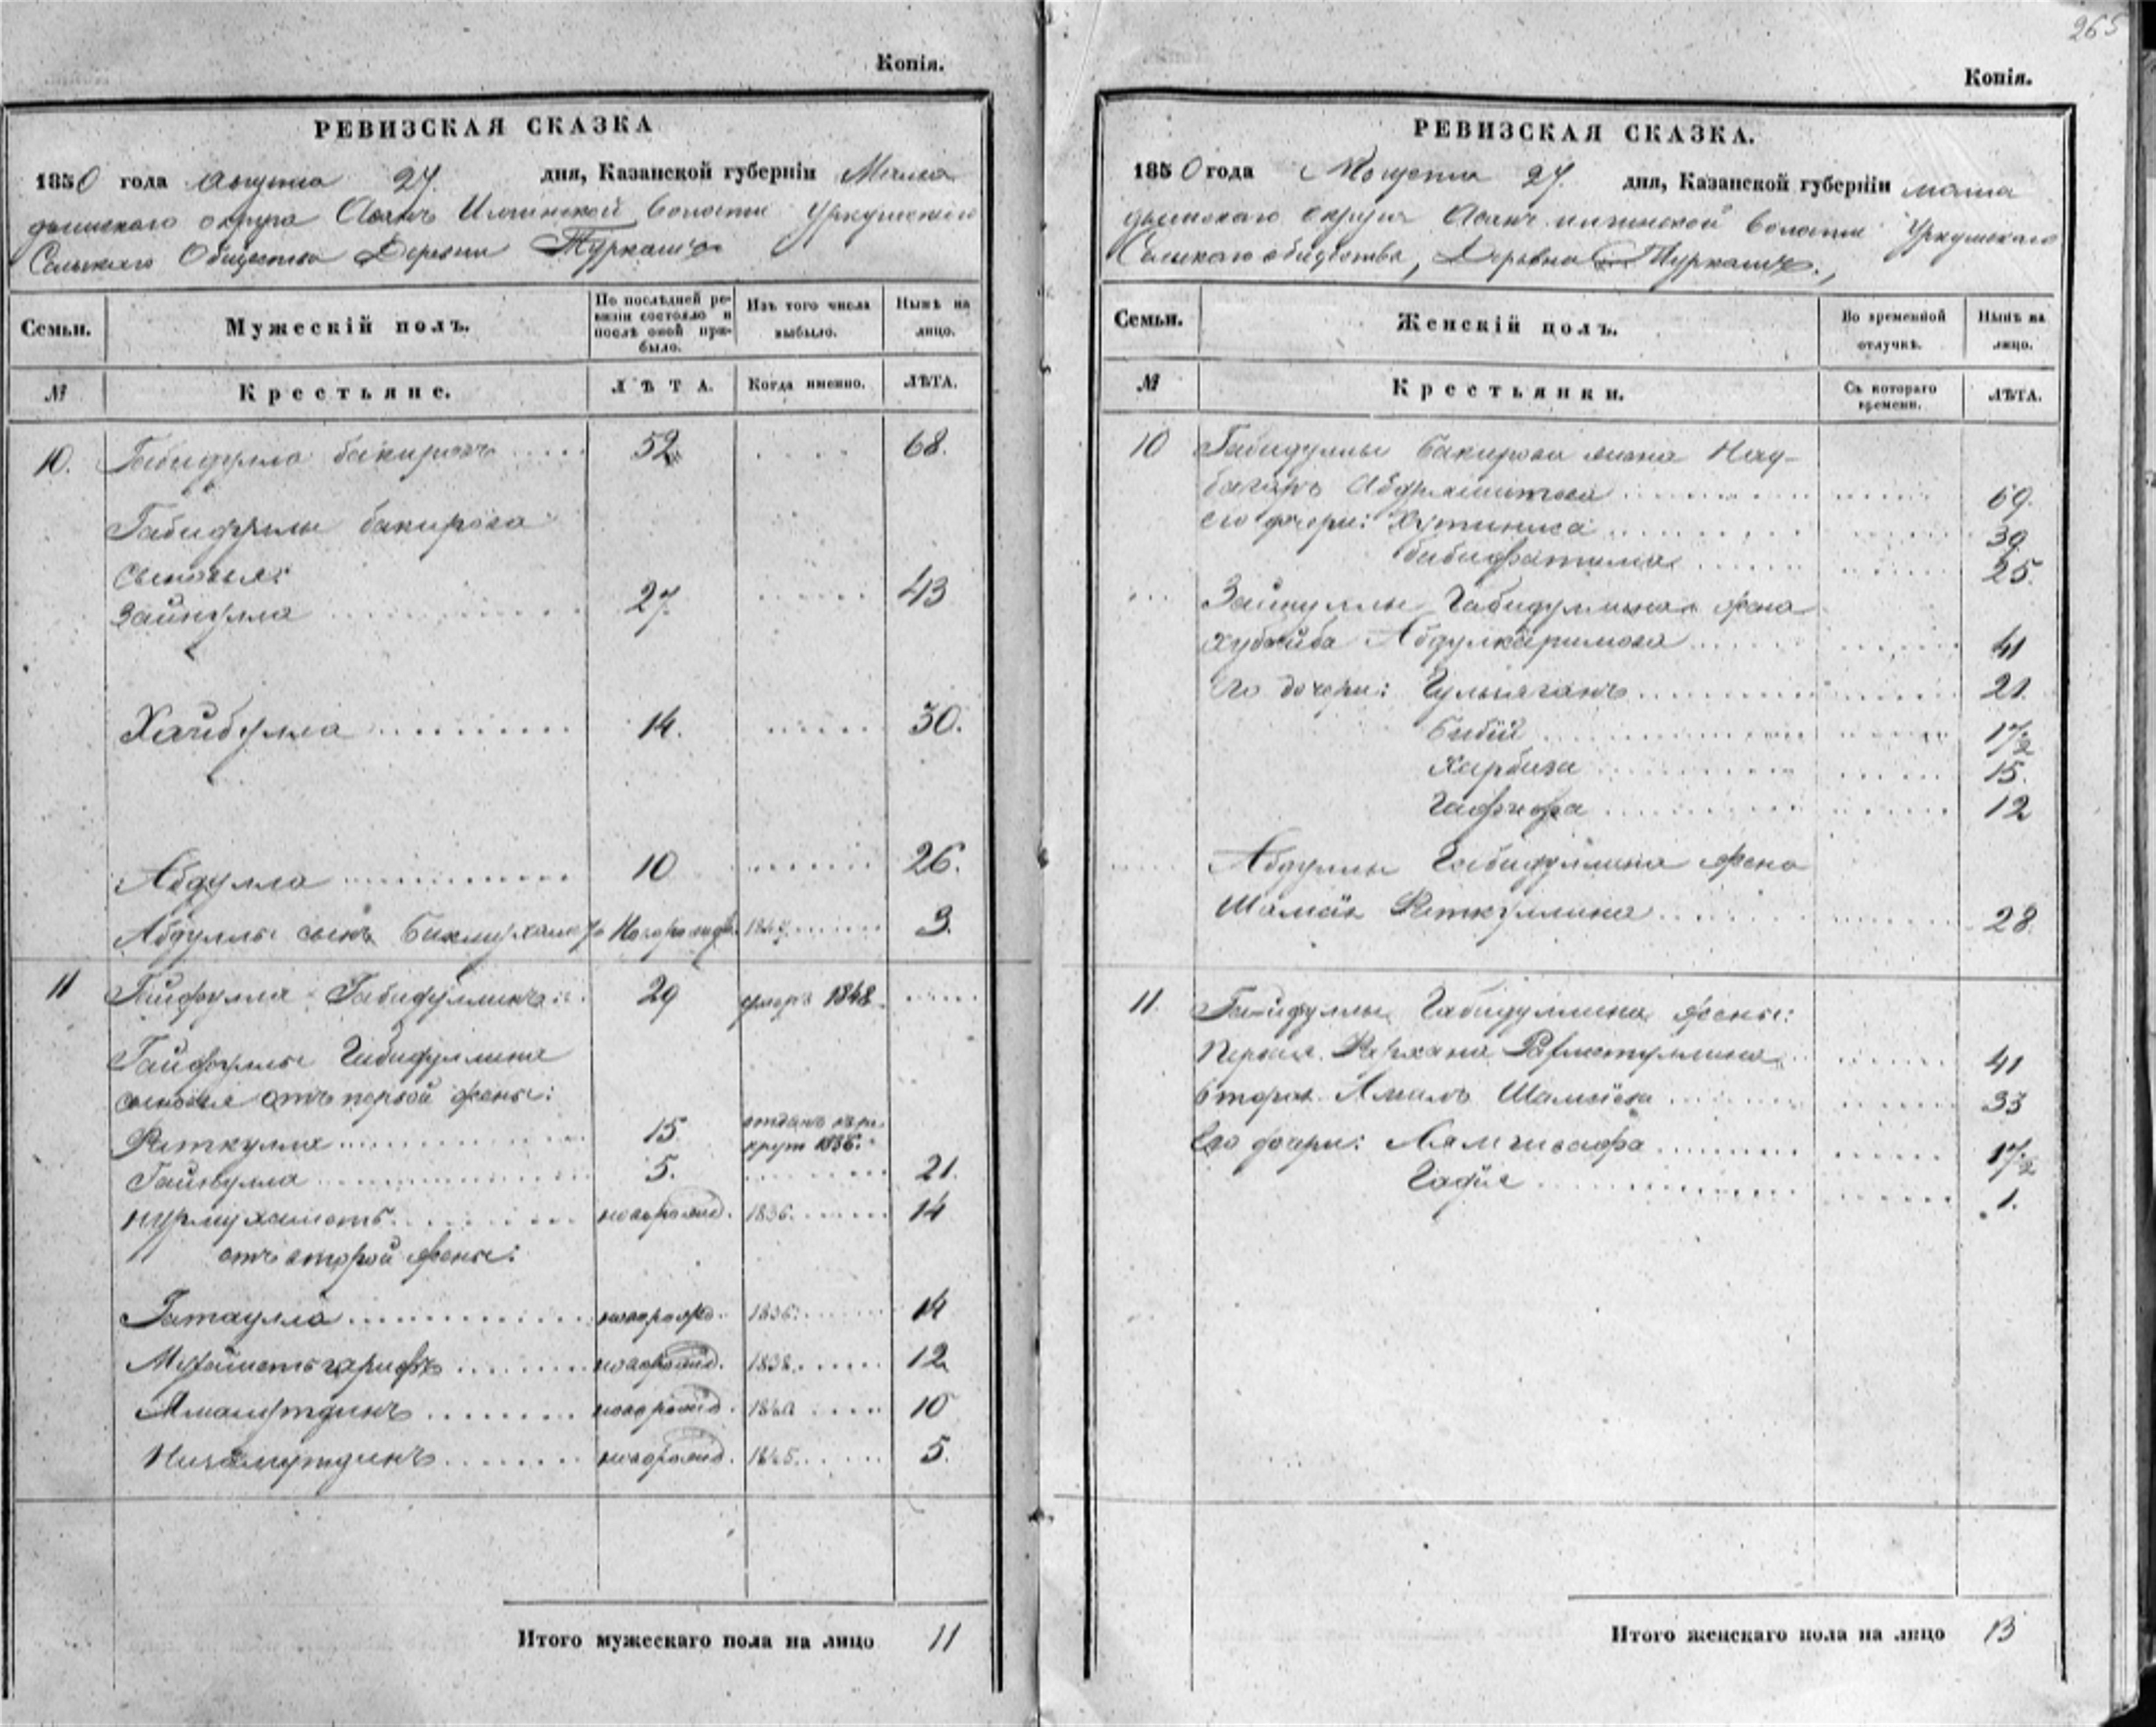 Копія.
РЕВИЗСКАЯ СКАЗКА
1850 года Августа 27. дня, Казанской губерніи Мама
дышскаго округа Асанъ Илгинской Волости Уркушскаго
Сельскаго Общества Деревни Туркашъ
Семьи. Мужескій полъ. По послѣдней ревизіи состояло и послѣ оной прибыло. Изъ того числа выбыло. Нынѣ на лицо.
№ Крестьяне. ЛѢТА. Когда именно. ЛѢТА.
10. Габидулла бакировъ 52 68.
Габидуллы бакирова
сыновья:
Зайнулла 27. 43
Хайбулла 14. 30.
Абдулла 10 26.
Абдуллы сынъ Новорожд. 3.
11 Гайфулла Габидуллинъ 29 умеръ 1848
Гайфуллы Габидуллина
сыновья отъ первой жены:
Раткулла 15 отданъ въ рекрут 1836.
5. 21.
Нурмухаметъ новорожд. 1836. 14
отъ второй жены:
Гатаулла новорожд. 1836. 14
новорожд. 1838. 12
новорожд. 1840 10
Низамутдинъ новорожд. 1845. 5.
Итого мужескаго пола на лицо 11
265
Копія.
РЕВИЗСКАЯ СКАЗКА.
1850 года Августа 27. дня, Казанской губерніи мама
дышскаго округа Асанъ илгинской Волости Уркушскаго
Сельскаго общества, Деревни Туркашъ.,
Семьи. Женскій полъ. Во временной отлучкѣ. Нынѣ на лицо.
№ Крестьянки. Съ котораго времени. ЛѢТА.
10 Габидуллы Бакирова жена
69.
его дочери: 39
бибифатима 25.
Зайнуллы Габидуллина жена
Хубейба Абдулкаримова 41
Его дочери: 21.
Бибій 17/2
Харбиза 15.
12
Абдуллы Габидуллина жена
Раткуллина 28.
11. Гайфуллы Габидуллина жены:
Первая 41
Вторая 33
Его дочери: 17/2
Гафія 1.
Итого женскаго пола на лицо 13